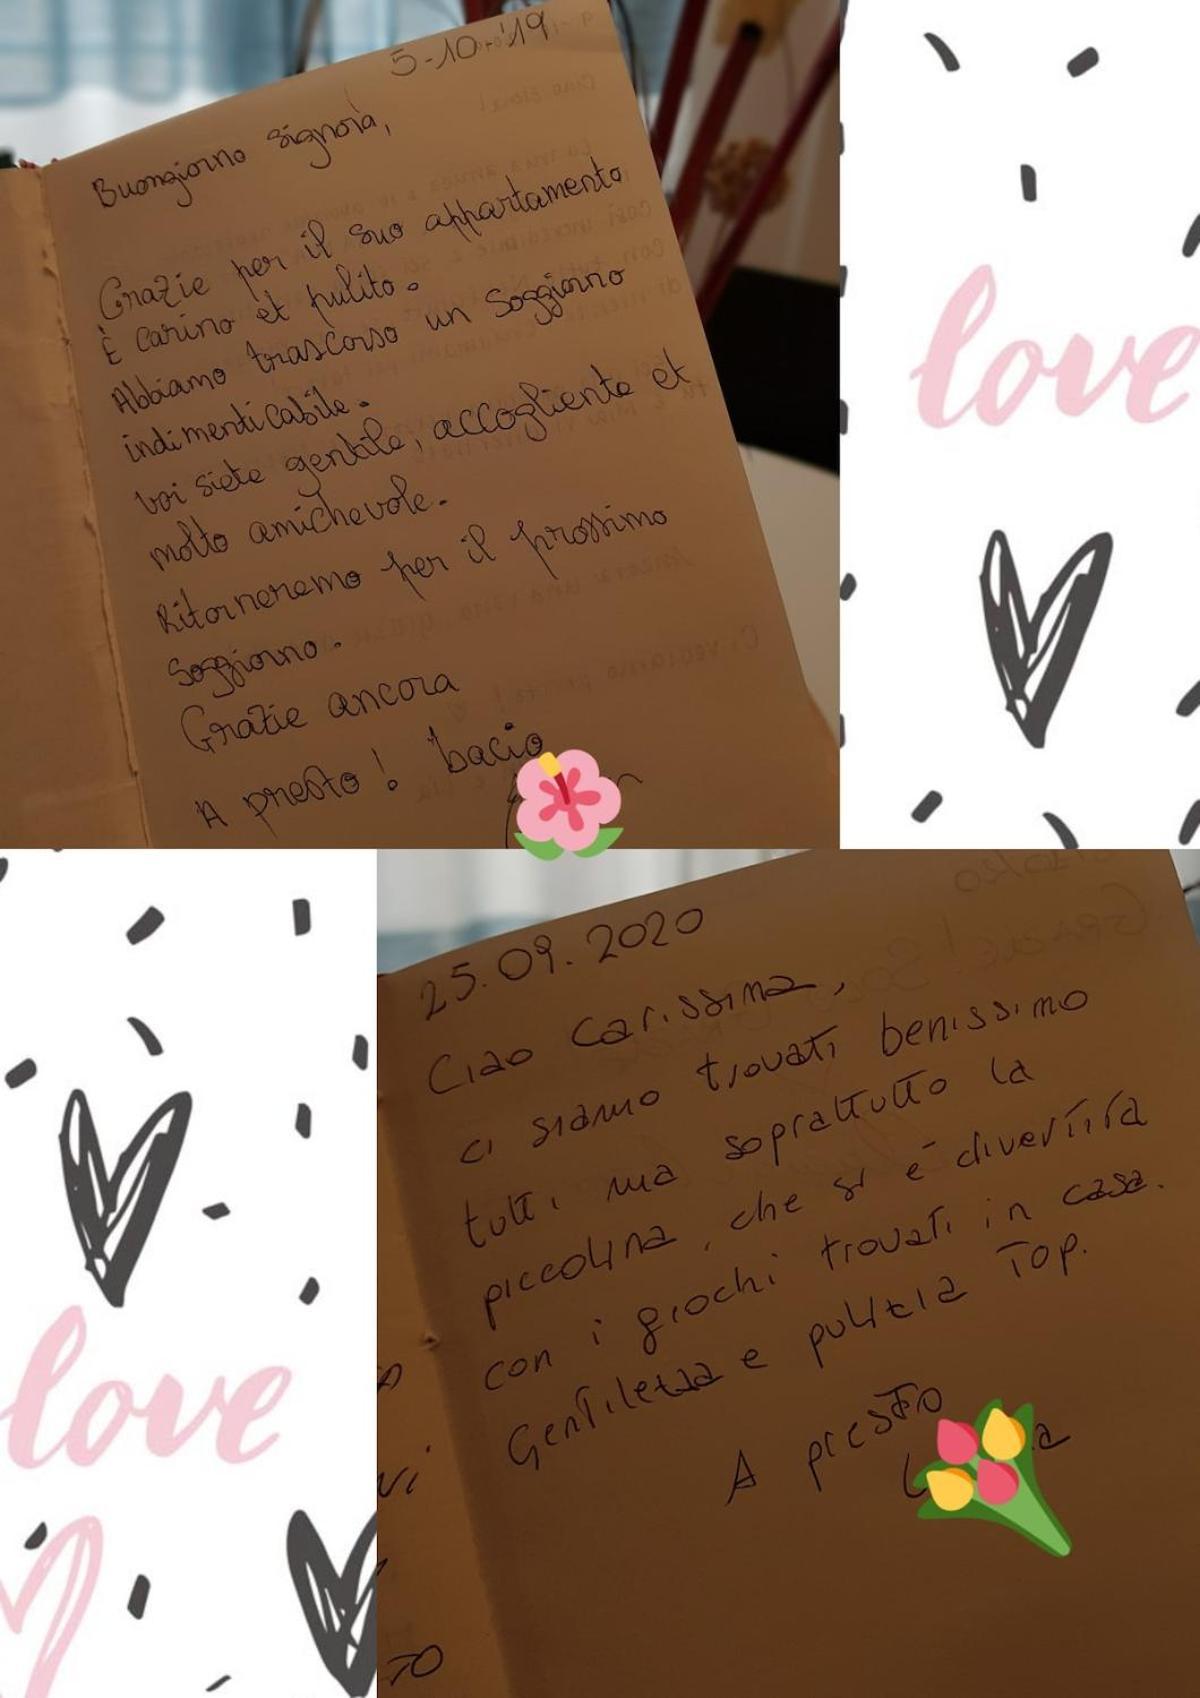 5-10-'19
Buongiorno Signora,
Grazie per il suo appartamento.
È carino et pulito.
Abbiamo trascorso un soggiorno
indimenticabile.
voi siete gentile, accogliente et
molto amichevole.
Ritorneremo per il prossimo
soggiorno.
Grazie ancora
A presto! bacio
love
25.09.2020
Ciao Carissima,
ci siamo trovati benissimo
tutti ma soprattutto la
piccolina, che si è divertita
con i giochi trovati in casa.
Gentilezza e pulizia Top.
A presto
love